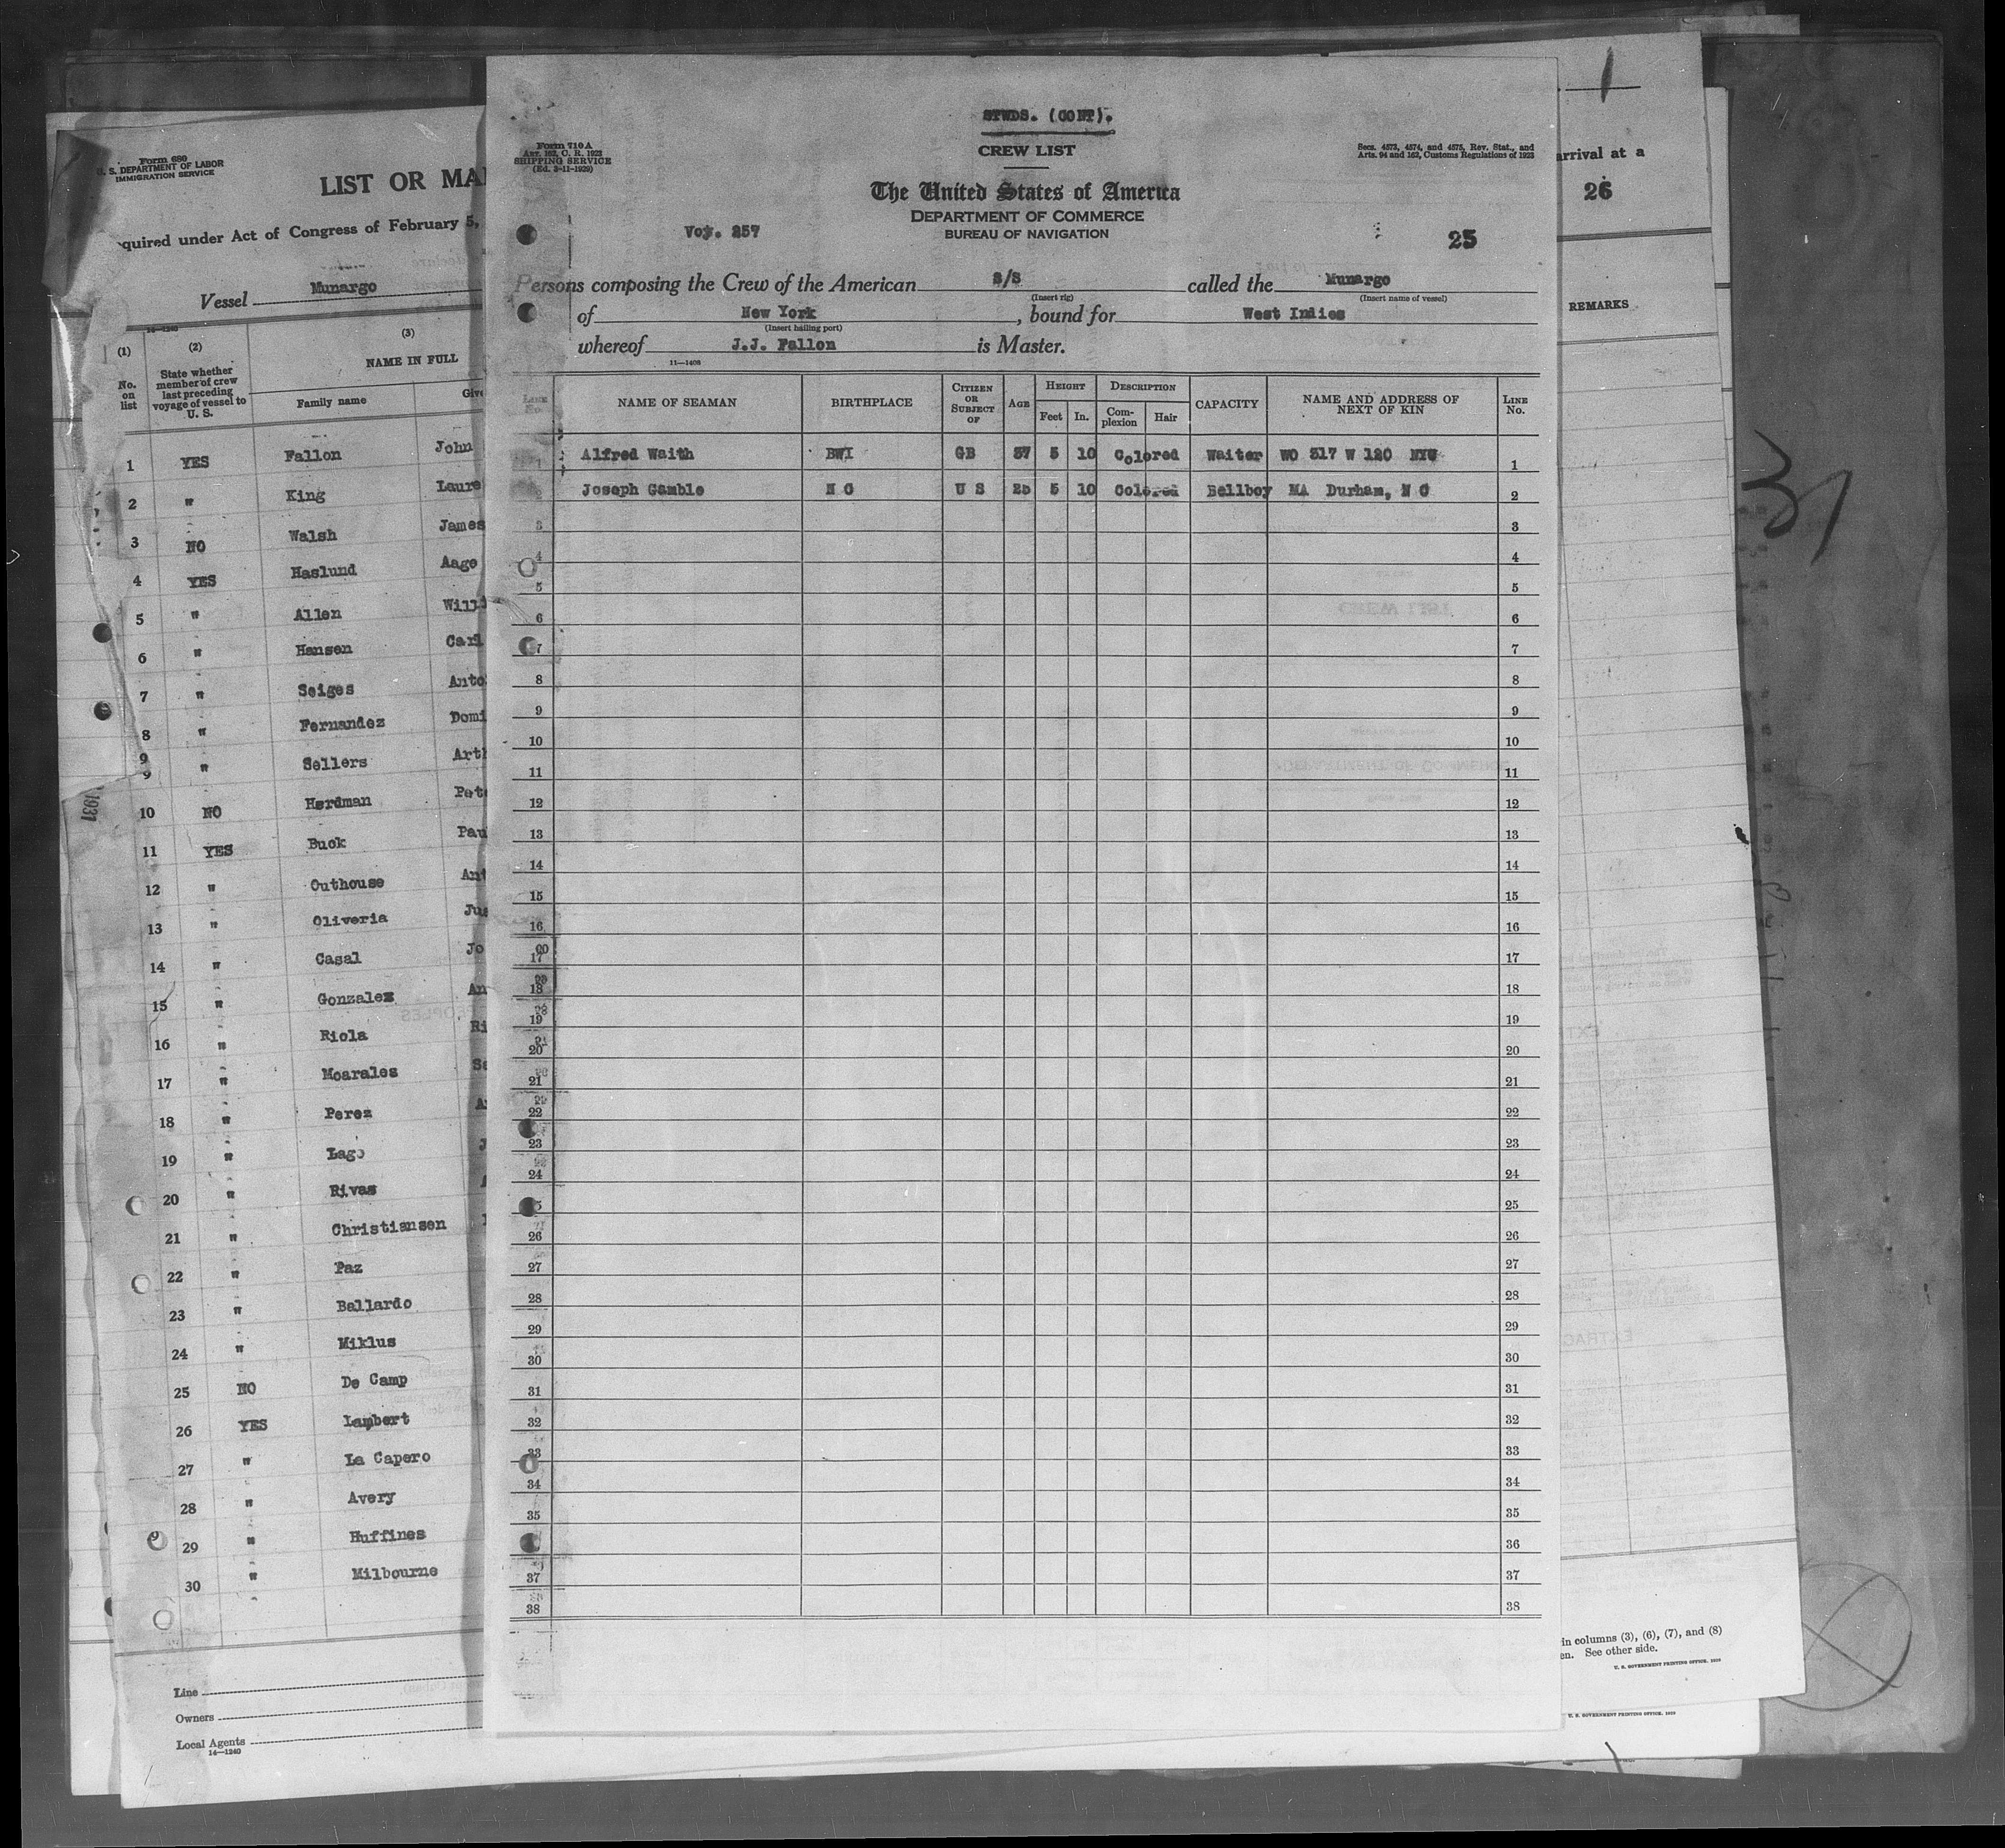 STWDS. (CONT).
Form 710 A
Art. 162, C. R. 1923
SHIPPING SERVICE
(Ed. 3-11-1929)
CREW LIST
Secs. 4573, 4574, and 4575, Rev. Stat., and
Arts. 94 and 162, Customs Regulations of 1923
The United States of America
DEPARTMENT OF COMMERCE
BUREAU OF NAVIGATION
Voy. 257
25
Persons composing the Crew of the American S/S called the Munargo
(Insert rig) (Insert name of vessel)
of New York , bound for West Indies
(Insert hailing port)
whereof J.J. Fallon is Master.
11—1408
LINE No. NAME OF SEAMAN BIRTHPLACE CITIZEN OR SUBJECT OF AGE HEIGHT Feet In. DESCRIPTION Complexion Hair CAPACITY NAME AND ADDRESS OF NEXT OF KIN LINE No.
1 Alfred Waith BWI GB 37 5 10 Colored Waiter WO 317 W 120 NYC 1
2 Joseph Gamble N C U S 25 5 10 Colored Bellboy MA Durham, N C 2
3 3
4 4
5 5
6 6
7 7
8 8
9 9
10 10
11 11
12 12
13 13
14 14
15 15
16 16
17 17
18 18
19 19
20 20
21 21
22 22
23 23
24 24
25 25
26 26
27 27
28 28
29 29
30 30
31 31
32 32
33 33
34 34
35 35
36 36
37 37
38 38
Form 680
U. S. DEPARTMENT OF LABOR
IMMIGRATION SERVICE
LIST OR MA
quired under Act of Congress of February 5,
Vessel Munargo
14—1240
(1) (2) (3)
No. on list
State whether member of crew last preceding voyage of vessel to U. S.
NAME IN FULL
Family name Give
1 YES Fallon John
2 " King Laure
3 NO Walsh James
4 YES Haslund Aage
5 " Allen Willi
6 " Hansen Carl
7 " Seiges Anto
8 " Fernandez Domi
9 " Sellers Arth
10 NO Herdman Pete
11 YES Buck Pau
12 " Outhouse Ant
13 " Oliveria Jus
14 " Casal Jo
15 " Gonzalez An
16 " Riola Ri
17 " Moarales Sa
18 " Perez A
19 " Lago J
20 " Rivas
21 " Christiansen
22 " Paz
23 " Ballardo
24 " Miklus
25 NO De Camp
26 YES Lambert
27 " La Capero
28 " Avery
29 " Huffines
30 " Milbourne
1931
Line
Owners
Local Agents
14—1240
arrival at a
26
REMARKS
31
in columns (3), (6), (7), and (8)
en. See other side.
U. S. GOVERNMENT PRINTING OFFICE
U. S. GOVERNMENT PRINTING OFFICE